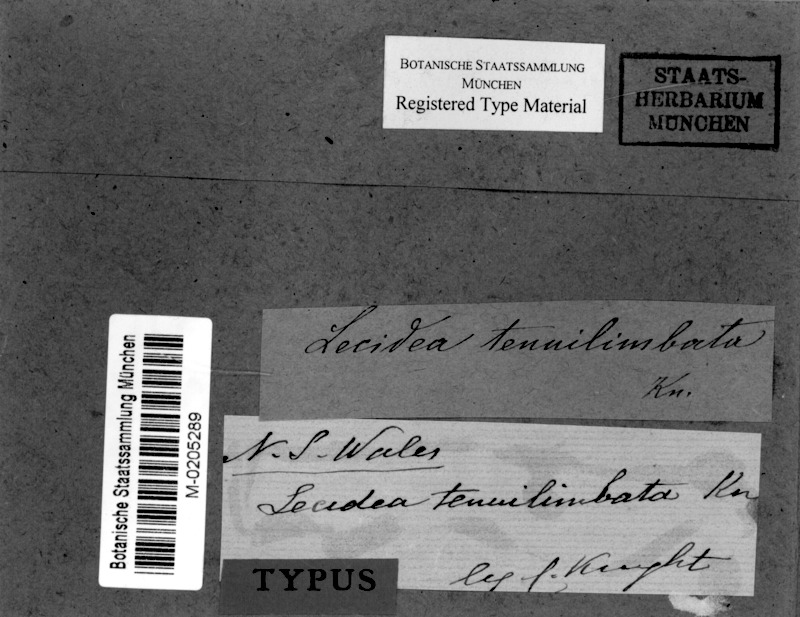 BOTANISCHE STAATSSAMMLUNG
MÜNCHEN
Registered Type Material
STAATS-
HERBARIUM
MÜNCHEN
Lecidea tenuilimbata
Kn.
Botanische Staatssammlung München
M-0205289
N. S. Wales
Lecidea tenuilimbata Kn
leg C. Knight
TYPUS